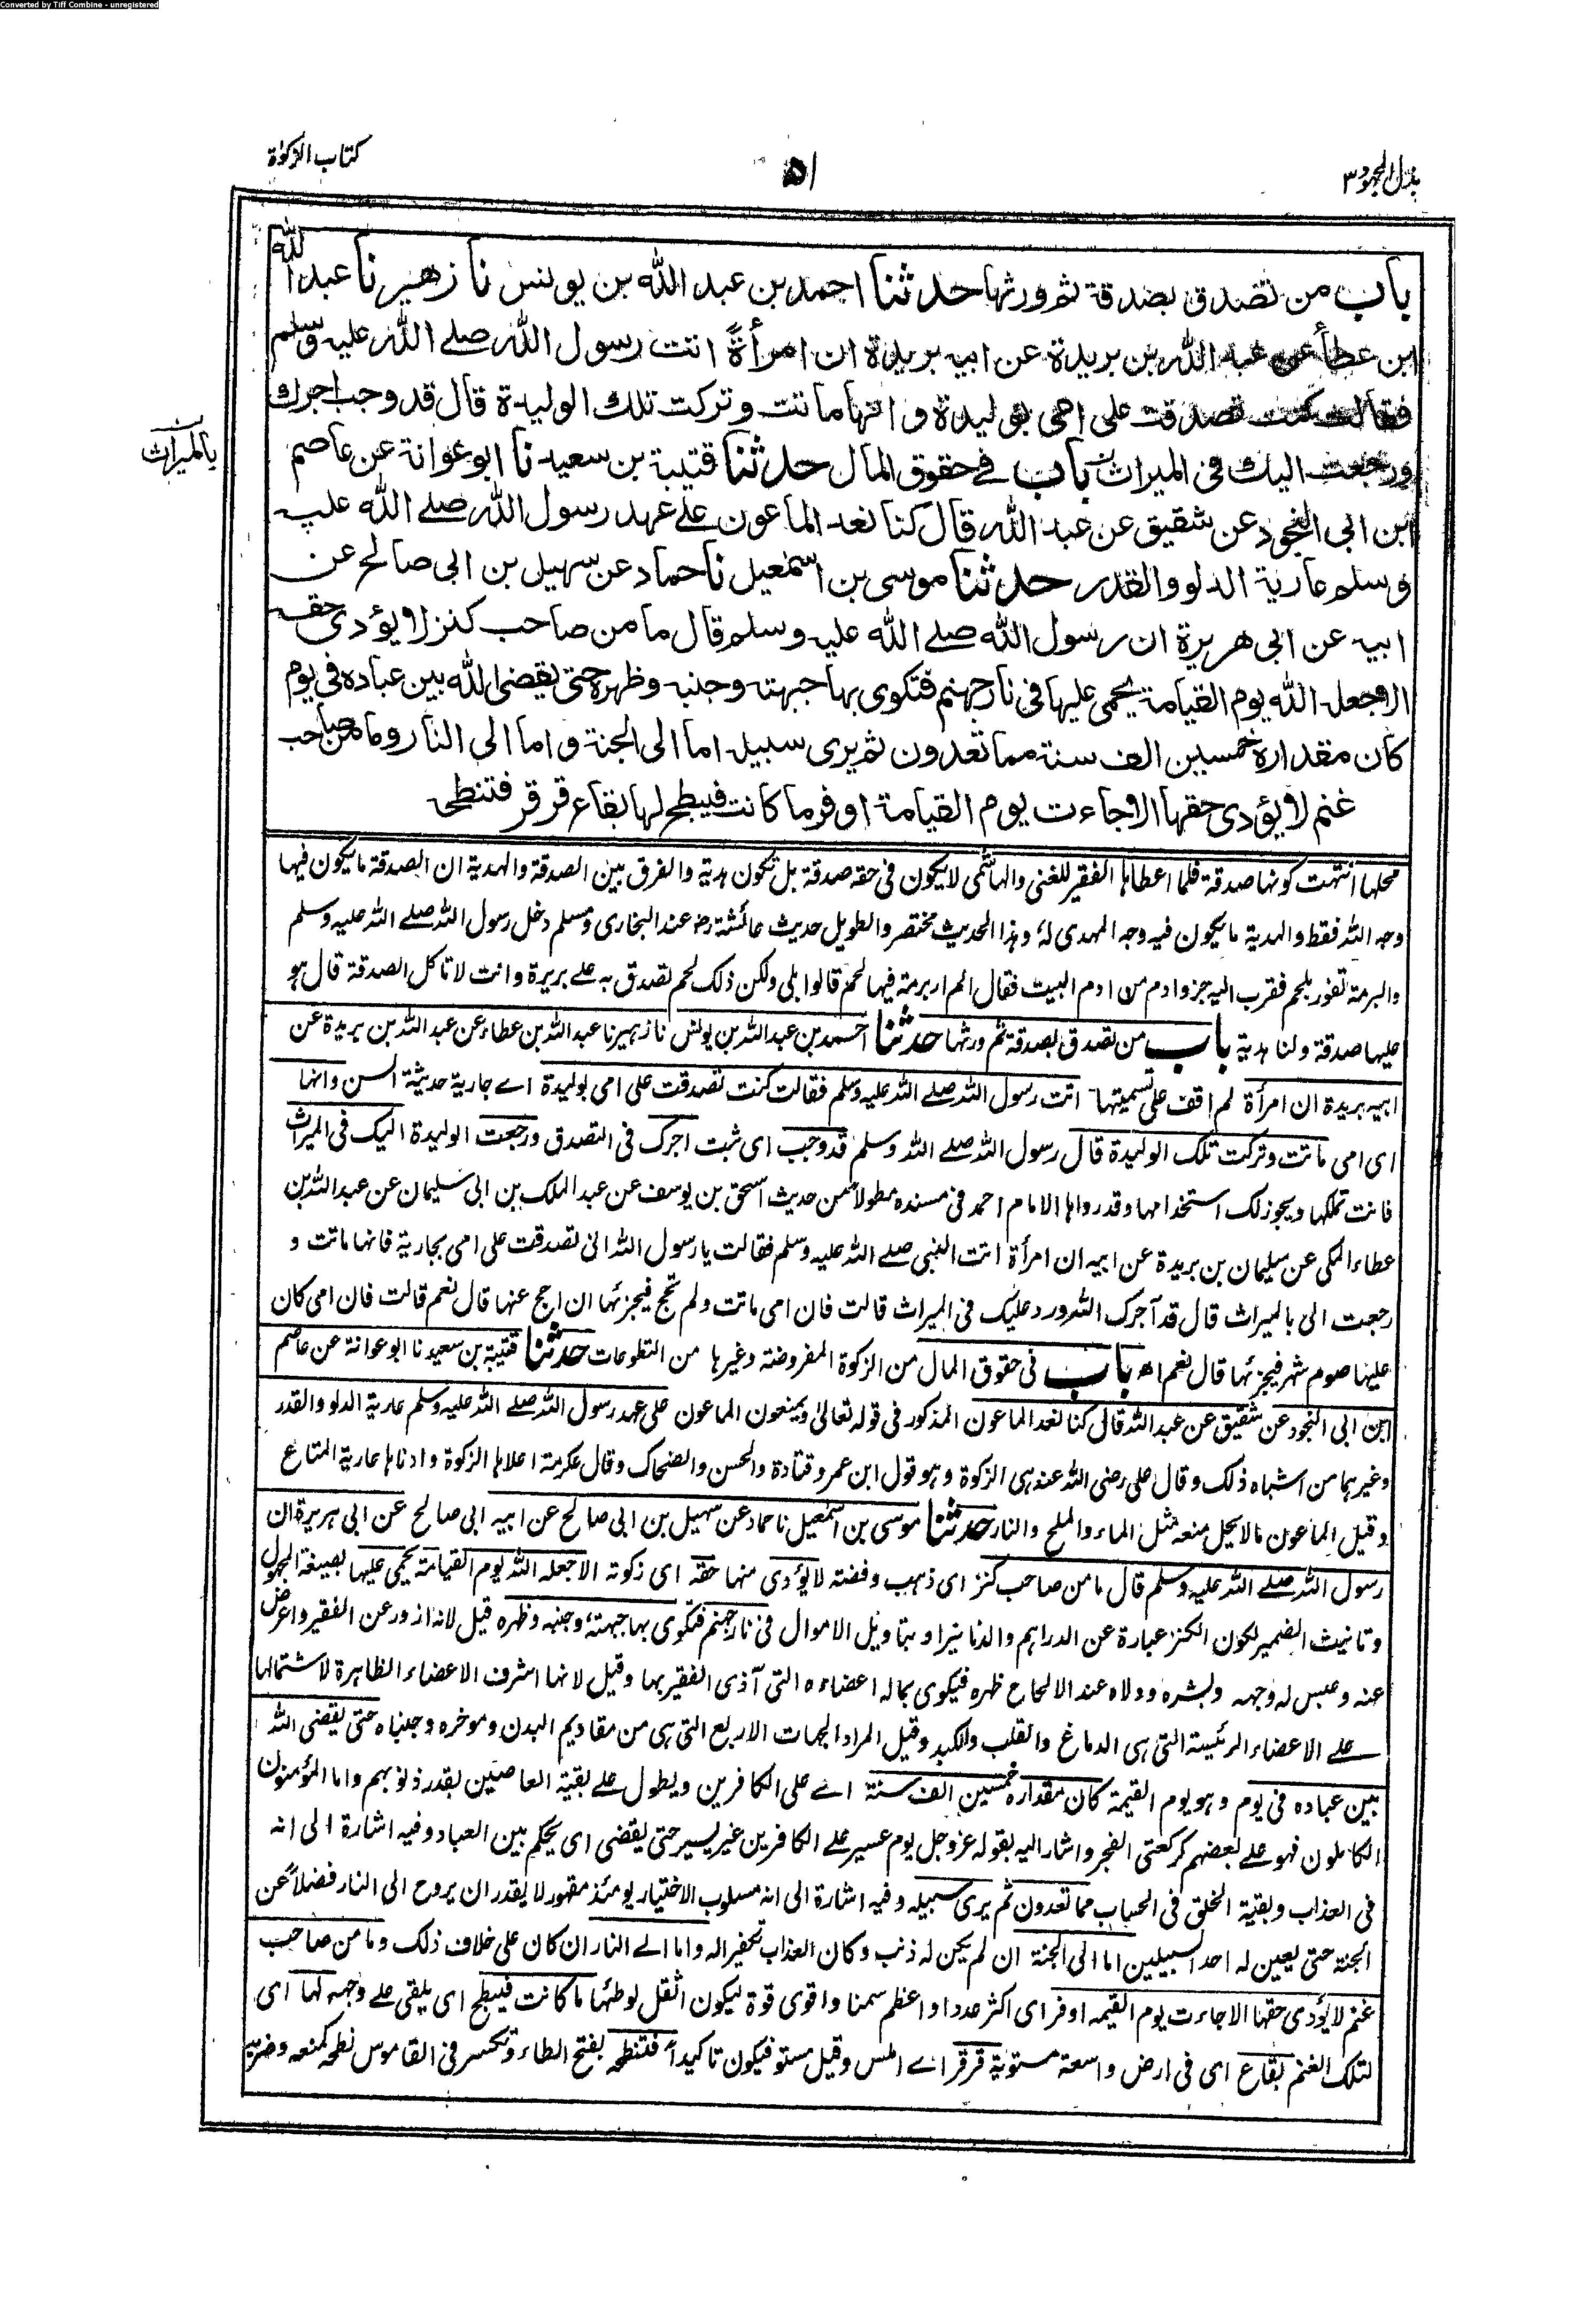 Converted by Tiff Combine - unregistered
بذل المجهود ٣
٥١
كتاب الزكوٰة
باب من تصدق بصدقة ثم ورثها حدثنا احمد بن عبد الله بن يونس نا زهير نا عبد الله
ابن عطأ عن عبد الله بن بريدة عن ابيه بريدة ان امرأةً اتت رسول الله صلے الله عليه وسلم
فقالت كنت تصدقت على امى بوليدة وانها ماتت وتركت تلك الوليدة قال قد وجب اجرك
ورجعت اليك فى الميراث باب فے حقوق المال حدثنا قتيبة بن سعيد نا ابو عوانة عن عاصم
بالميراث
ابن ابى النجود عن شقيق عن عبد الله قال كنا نعد الماعون علے عهد رسول الله صلے الله عليه
وسلم عارية الدلو والقدر حدثنا موسى بن اسمٰعيل نا حماد عن سهيل بن ابى صالح عن
ابيه عن ابى هريرة ان رسول الله صلے الله عليه وسلم قال ما من صاحب كنز لا يؤدى حقه
الا جعله الله يوم القيامة يحمى عليها فى نار جهنم فتكوى بها جبهته وجنبه وظهره حتى يقضى الله بين عباده فى يوم
كان مقداره خمسين الف سنة مما تعدون ثم يرى سبيله اما الى الجنة واما الى النار وما من صاحب
غنم لا يؤدى حقها الا جاءت يوم القيامة اوفر ما كانت فيبطح لها بقاع قرقر فتنطحه
محلها انتهت كونها صدقة فلما اعطاها الفقير للغنى والهاشمى لا يكون فى حقه صدقة بل تكون هدية والفرق بين الصدقة والهدية ان الصدقة ما يكون فيها
وجه الله فقط والهدية ما يكون فيه وجه المهدى له وهذا الحديث مختصر والطويل حديث عائشة رض عند البخارى ومسلم دخل رسول الله صلے الله عليه وسلم
والبرمة تفور بلحم فقرب اليه خبز وادم من ادم البيت فقال الم ار برمة فيها لحم قالوا بلى ولكن ذلك لحم تصدق به علے بريرة وانت لا تاكل الصدقة قال هو
عليها صدقة ولنا هدية باب من تصدق بصدقة ثم ورثها حدثنا احمد بن عبد الله بن يونس نا زهير نا عبد الله بن عطاء عن عبد الله بن بريدة عن
ابيه بريدة ان امرأة لم اقف على تسميتها اتت رسول الله صلے الله عليه وسلم فقالت كنت تصدقت على امى بوليدة اے جارية حديثة السن وانها
اى امى ماتت وتركت تلك الوليدة قال رسول الله صلے الله وسلم قد وجب اى ثبت اجرك فى التصدق ورجعت الوليدة اليك فى الميراث
فانت تملكها ويجوز لك استخدامها وقد رواها الامام احمد فى مسنده مطولا من حديث اسحق بن يوسف عن عبد الملك بن ابى سليمان عن عبد الله بن
عطاء المكى عن سليمان بن بريدة عن ابيه ان امرأة اتت النبى صلے الله عليه وسلم فقالت يا رسول الله انى تصدقت على امى بجارية فانها ماتت و
رجعت الى بالميراث قال قد آجرك الله ورد عليك فى الميراث قالت فان امى ماتت ولم تحج فيجزئها ان احج عنها قال نعم قالت فان امى كان
عليها صوم شهر فيجزئها قال نعم اھ باب فى حقوق المال من الزكوة المفروضة وغيرها من التطوعات حدثنا قتيبة بن سعيد نا ابو عوانة عن عاصم
ابن ابى النجود عن شقيق عن عبد الله قال كنا نعد الماعون المذكور فى قوله تعالىٰ ويمنعون الماعون على عهد رسول الله صلے الله عليه وسلم عارية الدلو والقدر
وغيرهما من اشباه ذلك وقال على رضى الله عنه هى الزكوة وهو قول ابن عمر وقتادة والحسن والضحاك وقال عكرمة اعلاها الزكوة وادناها عارية المتاع
وقيل الماعون ما لا يحل منعه مثل الماء والملح والنار حدثنا موسى بن اسمٰعيل نا حماد عن سهيل بن ابى صالح عن ابيه ابى صالح عن ابى هريرة ان
رسول الله صلے الله عليه وسلم قال ما من صاحب كنز اى ذهب وفضة لا يؤدى منها حقه اى زكوته الا جعله الله يوم القيامة يحمى عليها بصيغة المجهول
وتانيث الضمير لكون الكنز عبارة عن الدراهم والدنانير او بتاويل الاموال فى نار جهنم فتكوى بها جبهته وجنبه وظهره قيل لانه ازور عن الفقير واعرض
عنه وعبس له وجهه وبشره وولاه عند الالحاح ظهره فيكوى بماله اعضاءه التى آذى الفقير بها وقيل لانها اشرف الاعضاء الظاهرة لاشتمالها
علے الاعضاء الرئيسة التى هى الدماغ والقلب والكبد وقيل المراد الجهات الاربع التى هى من مقاديم البدن وموخره وجنباه حتى يقضى الله
بين عباده فى يوم وهو يوم القيمة كان مقداره خمسين الف سنة اے على الكافرين ويطول علے بقية العاصين بقدر ذنوبهم واما المؤمنون
الكاملون فهو علے بعضهم كركعتى الفجر واشار اليه بقوله عز وجل يوم عسير علے الكافرين غير يسير حتى يقضى اى يحكم بين العباد وفيه اشارة الى انه
فى العذاب وبقية الخلق فى الحساب مما تعدون ثم يرى سبيله وفيه اشارة الى انه مسلوب الاختيار يومئذ مقهور لا يقدر ان يروح الى النار فضلاً عن
الجنة حتى يعين له احد السبيلين اما الى الجنة ان لم يكن له ذنب وكان العذاب تكفيرا له واما الے النار ان كان على خلاف ذلك وما من صاحب
غنم لا يؤدى حقها الا جاءت يوم القيمه اوفر اى اكثر عددا واعظم سمنا واقوى قوة ليكون اثقل لوطئها ما كانت فيبطح اى يلقى علے وجهه لها اى
لتلك الغنم بقاع اى فى ارض واسعة مستوية قرقر اے املس وقيل مستو فيكون تاكيداً فتنطحه بفتح الطاء وتكسر فى القاموس نطحه كمنعه وضربه